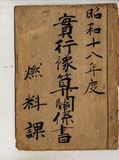 昭和十八年度
實行豫算關係書
燃料課